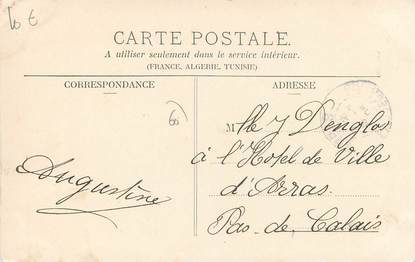 10 €
CARTE POSTALE.
A utiliser seulement dans le service intérieur.
(FRANCE, ALGERIE, TUNISIE)
CORRESPONDANCE
ADRESSE
60
Mlle J Denglos
à l'Hotel de Ville
d'Arras
Pas-de-Calais
Augustine